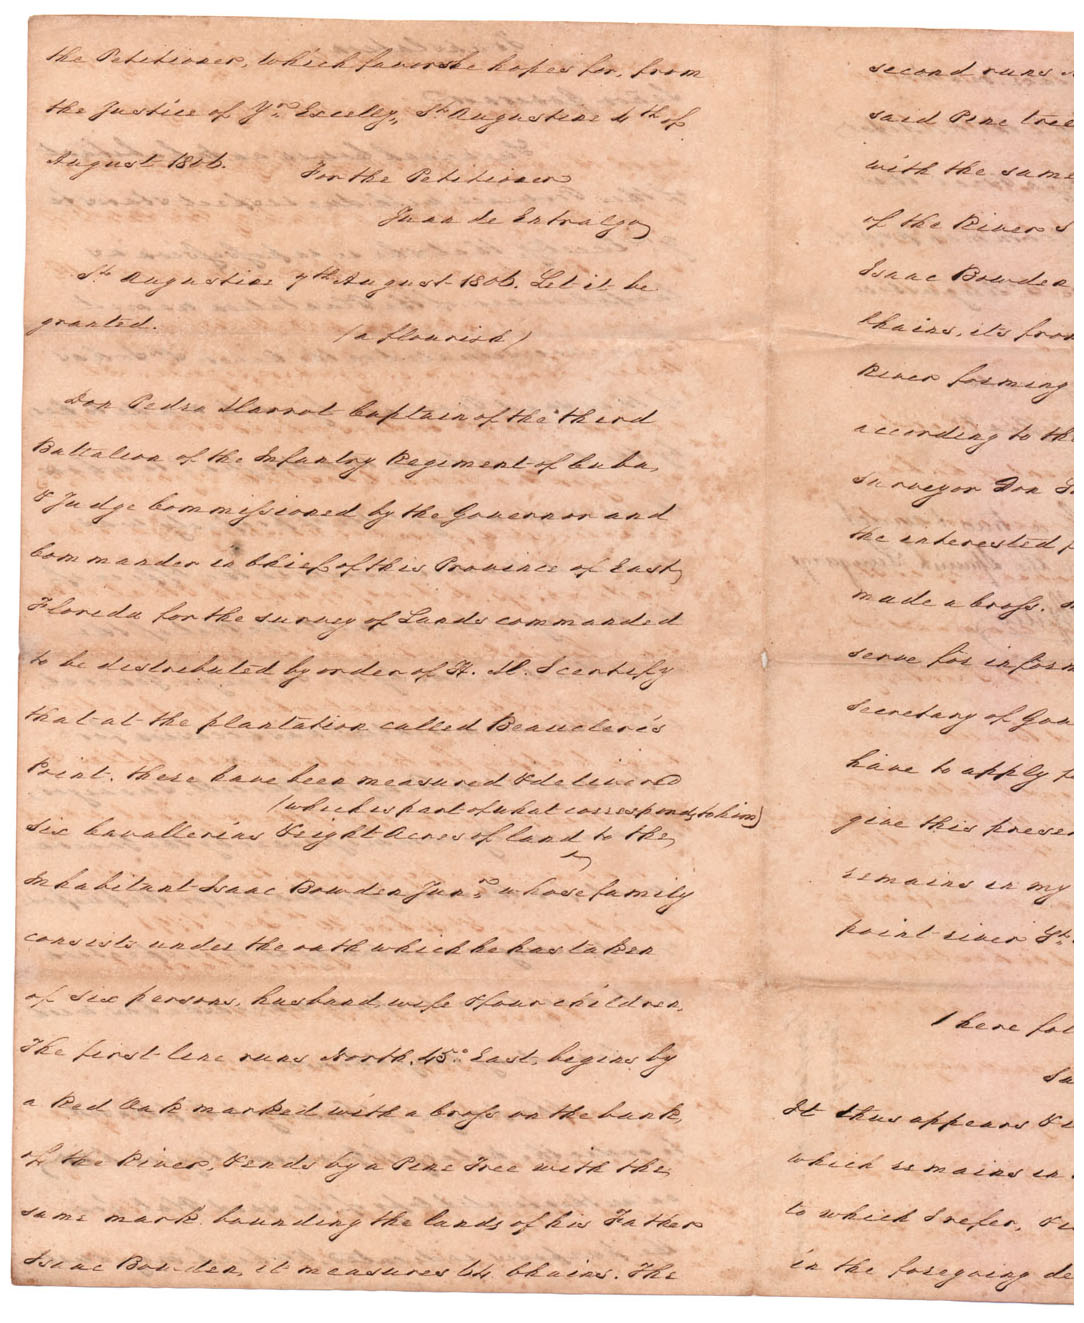 the Petitioner, which favor she hopes for, from
the Justice of Yr. Excelly. St. Augustine 4th of
August 1806.
For the Petitioner
Juan de Entralgo
St. Augustine 7th August 1806. Let it be
granted.
(a flourish)
Don Pedro Marrot Captain of the third
Battalion of the Infantry Regiment of Cuba,
& Judge Commissioned by the Governor and
Commander in Chief of this Province of East
Florida for the survey of Lands commanded
to be destributed by order of H. M. I certify
that at the plantation called Beaucleris
Point, there have been measured & delivered
(which is part of what corresponds to him)
six cavallerias & eight Acres of land to the
Inhabitant Isaac Bowden Junr. whose family
consists under the oath which he has taken
of six persons, husband, wife & four children.
The first line runs North 45° East, begins by
a Red Oak marked with a Cross on the bank
of the River, & ends by a Pine Tree with the
same mark bounding the lands of his Father
Isaac Bowden, it measures 64 Chains. The
second runs
said Pine tree
with the same
of the River
Isaac Bowden
Chains, its fron
River forming
according to th
Surveyor Don
the interested
made a Cross.
serve for inform
Secretary of Gov
have to apply
give this presen
remains in my
point river St.
I here fol
Sa
It thus appears &
which remains in
to which I refer, &
in the foregoing de